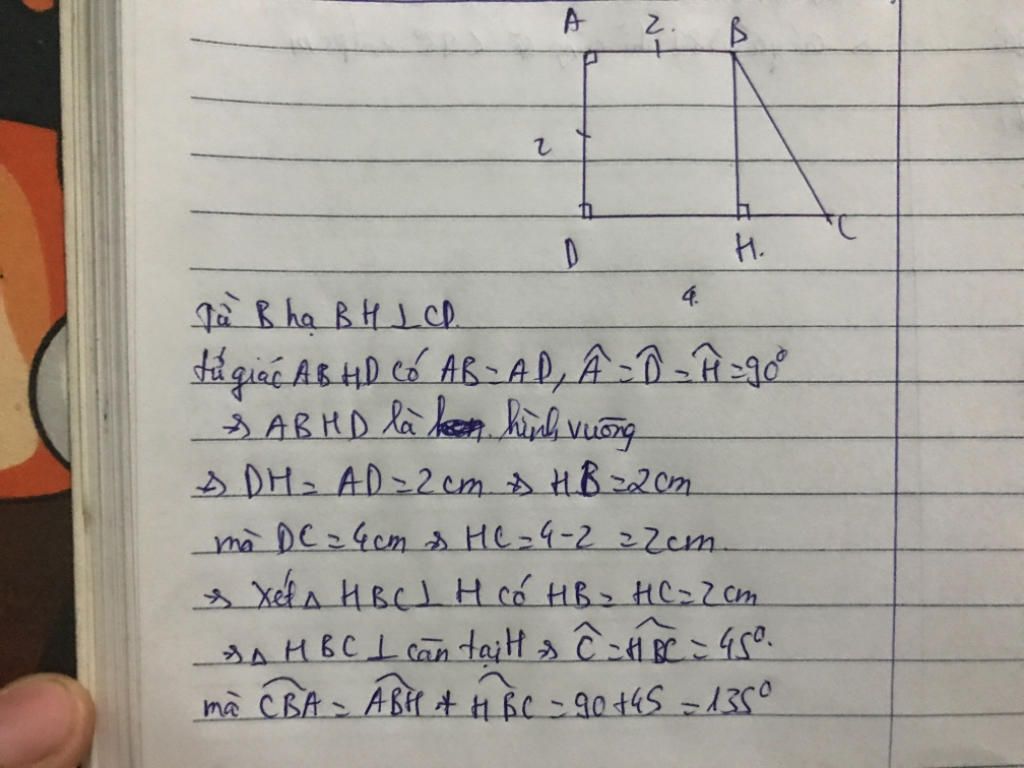 A 2. B
2
D H. C
4.
Từ B hạ BH ⊥ CD.
tứ giác ABHD có AB = AD, Â = D̂ = Ĥ = 90°
⇒ ABHD là hình vuông
⇒ DH = AD = 2cm ⇒ HB = 2cm
mà DC = 4cm ⇒ HC = 4-2 = 2cm.
⇒ Xét △ HBC ⊥ H có HB = HC = 2cm
⇒ △ HBC ⊥ cân tại H ⇒ Ĉ = HBĈ = 45°.
mà CBÂ = ABĤ + HBĈ = 90+45 = 135°